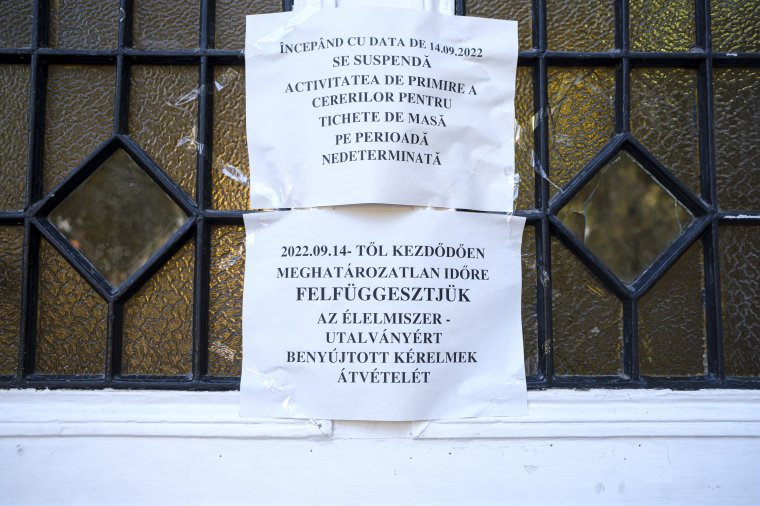 ÎNCEPÂND CU DATA DE 14.09.2022
SE SUSPENDĂ
ACTIVITATEA DE PRIMIRE A
CERERILOR PENTRU
TICHETE DE MASĂ
PE PERIOADĂ
NEDETERMINATĂ
2022.09.14- TŐL KEZDŐDŐEN
MEGHATÁROZATLAN IDŐRE
FELFÜGGESZTJÜK
AZ ÉLELMISZER -
UTALVÁNYÉRT
BENYÚJTOTT KÉRELMEK
ÁTVÉTELÉT